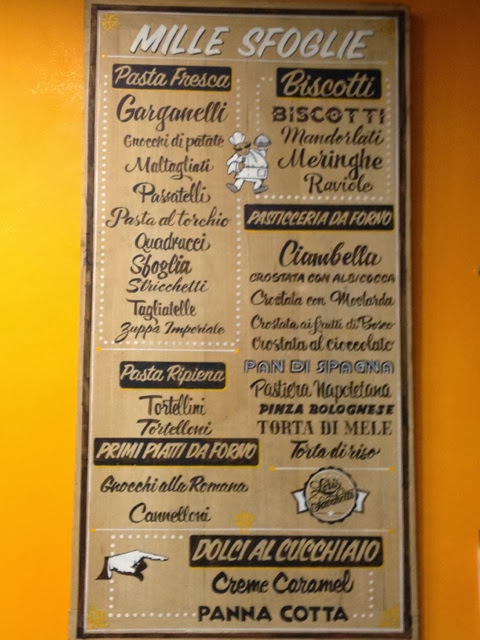 MILLE SFOGLIE
Pasta Fresca
Garganelli
Gnocchi di patate
Maltagliati
Passatelli
Pasta al torchio
Quadrucci
Sfoglia
Stricchetti
Tagliatelle
Zuppa Imperiale
Pasta Ripiena
Tortellini
Tortelloni
PRIMI PIATTI DA FORNO
Gnocchi alla Romana
Cannelloni
Biscotti
BISCOTTI
Mandorlati
Meringhe
Raviole
PASTICCERIA DA FORNO
Ciambella
CROSTATA CON ALBICOCCA
Crostata con Mostarda
Crostata ai frutti di Bosco
Crostata al cioccolato
PAN DI SPAGNA
Pastiera Napoletana
PINZA BOLOGNESE
TORTA DI MELE
Torta di riso
Sacchetti
DOLCI AL CUCCHIAIO
Creme Caramel
PANNA COTTA